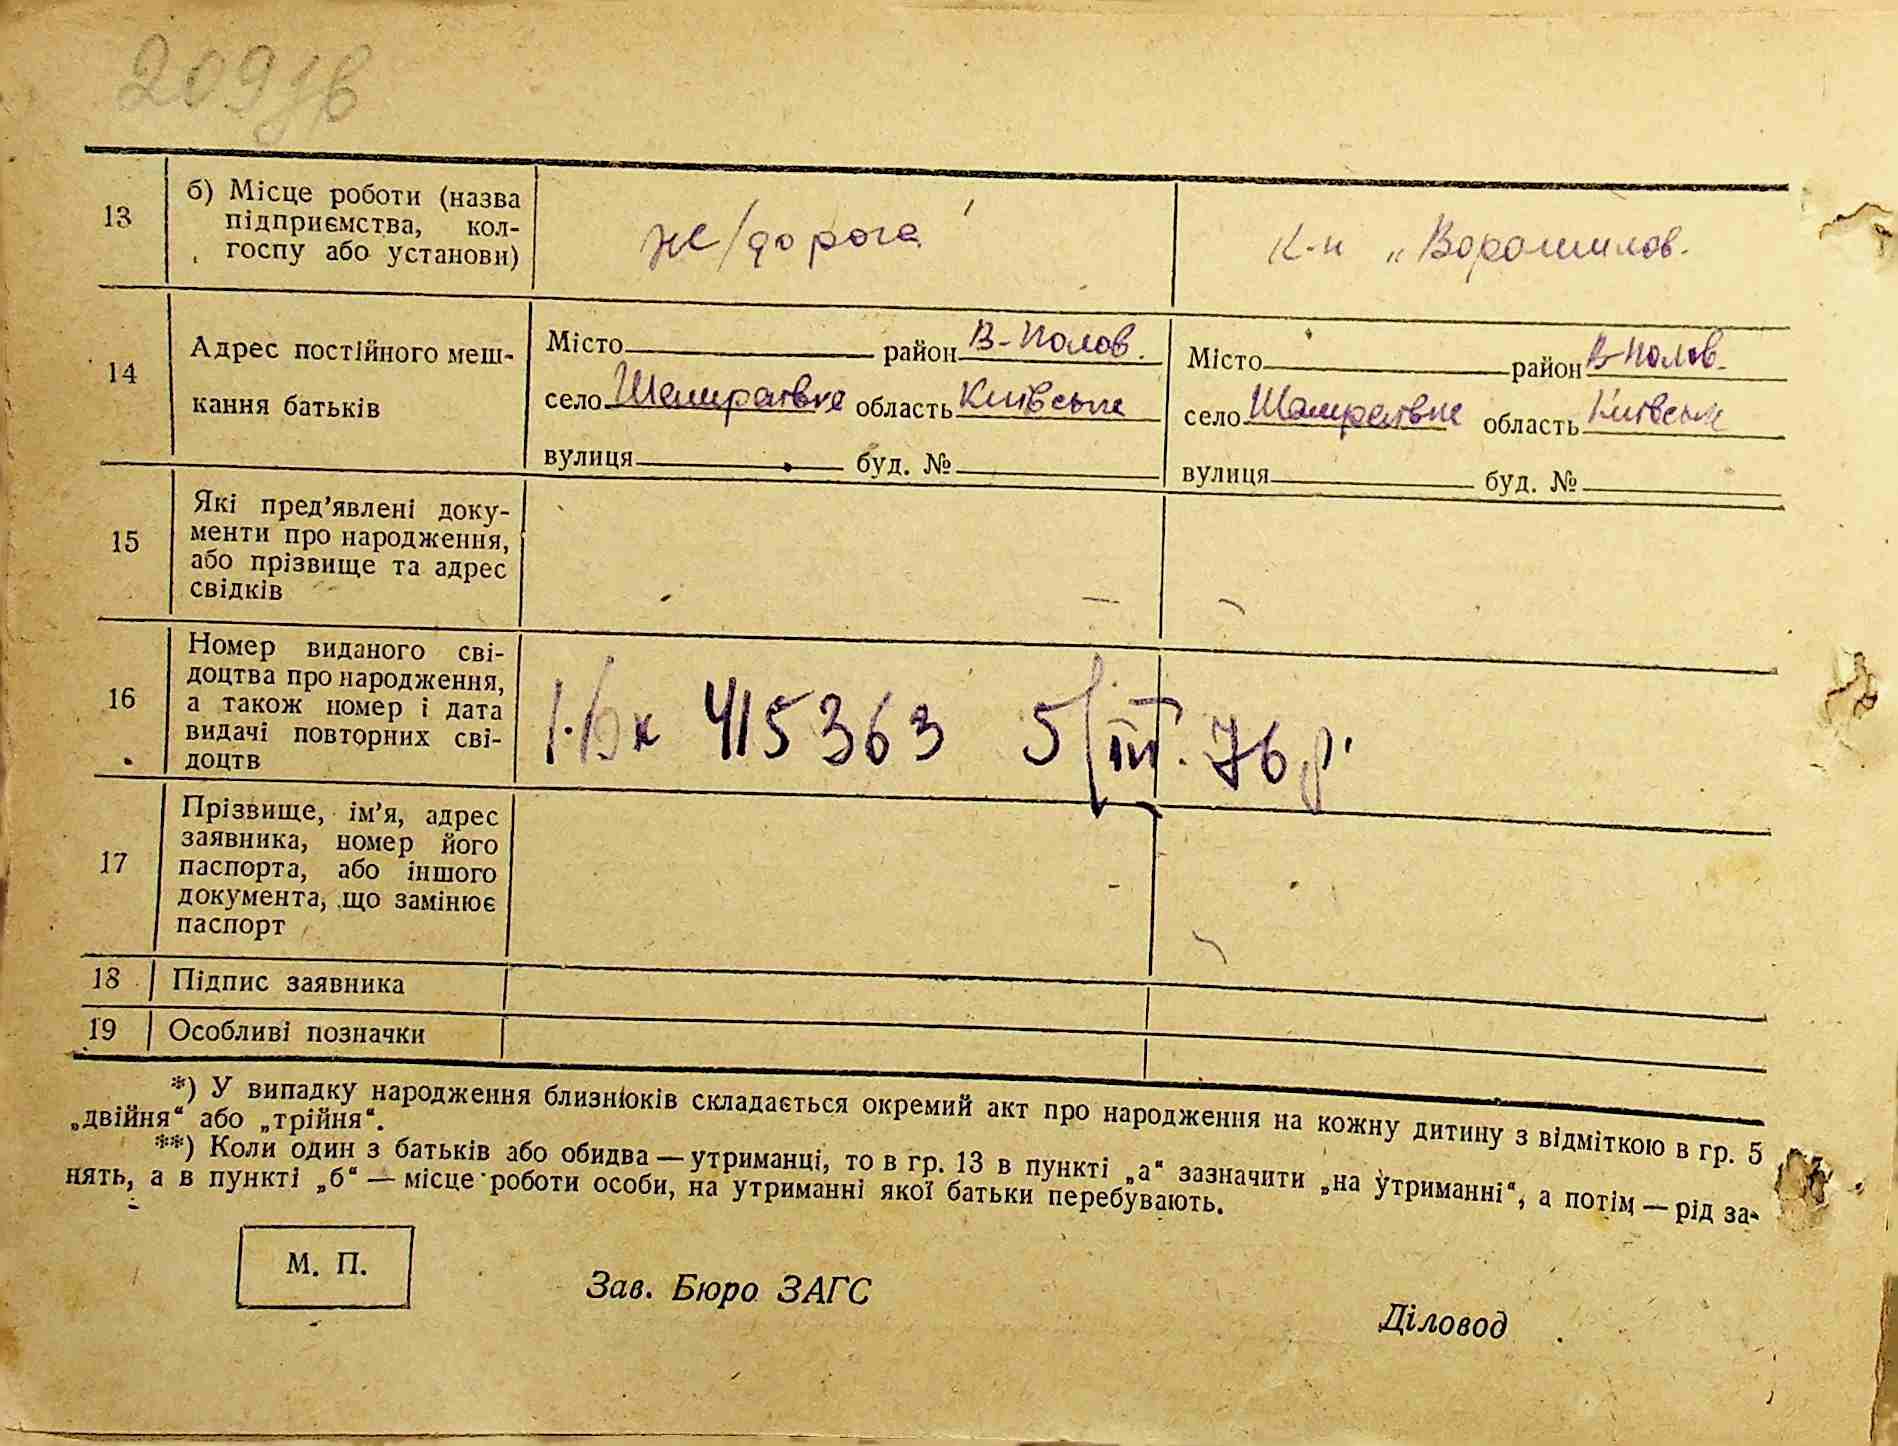 209 зв
13 б) Місце роботи (назва
підприємства, кол-
госпу або установи)
ж/дорога
к-п „Ворошилов.
14 Адрес постійного меш-
кання батьків
Місто район В-Полов.
село Шамраївка область Київська
вулиця буд. №
Місто район В-Полов.
село Шамраївка область Київська
вулиця буд. №
15 Які пред'явлені доку-
менти про народження,
або прізвище та адрес
свідків
16 Номер виданого сві-
доцтва про народження,
а також номер і дата
видачі повторних сві-
доцтв
415363 5/III. 76 р.
17 Прізвище, ім'я, адрес
заявника, номер його
паспорта, або іншого
документа, що замінює
паспорт
18 Підпис заявника
19 Особливі позначки
*) У випадку народження близнюків складається окремий акт про народження на кожну дитину з відміткою в гр. 5
„двійня“ або „трійня“.
**) Коли один з батьків або обидва — утриманці, то в гр. 13 в пункті „а“ зазначити „на утриманні“, а потім — рід за-
нять, а в пункті „б“ — місце роботи особи, на утриманні якої батьки перебувають.
М. П.
Зав. Бюро ЗАГС
Діловод